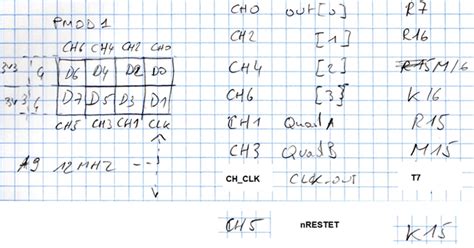 PMOD1
CH6 CH4 CH2 CH0
3V3 G D6 D4 D2 D0
3V3 G D7 D5 D3 D1
CH5 CH3 CH1 CLK
A9 12MHZ
CH0 out[0] R7
CH2 [1] R16
CH4 [2] M16
CH6 [3] K16
CH1 QuadA R15
CH3 QuadB M15
CH_CLK CLK_OUT T7
CH5 nRESTET K15